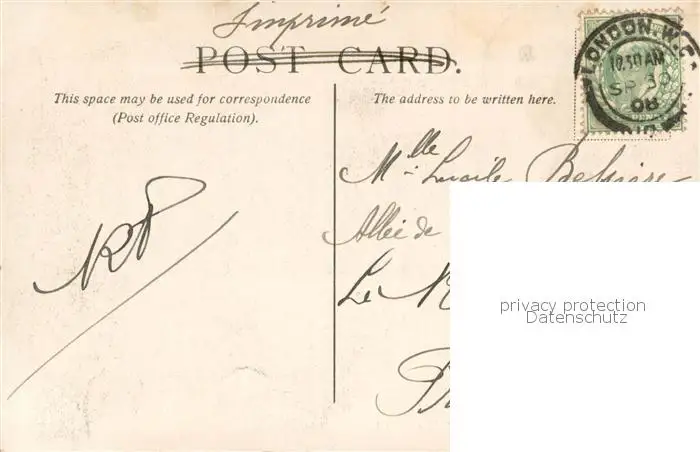 Imprimé
POST CARD.
This space may be used for correspondence
(Post office Regulation).
The address to be written here.
LONDON. W.C.
10.30 AM
SP 30
08
Mlle Lucile
Allée de
Le
privacy protection
Datenschutz